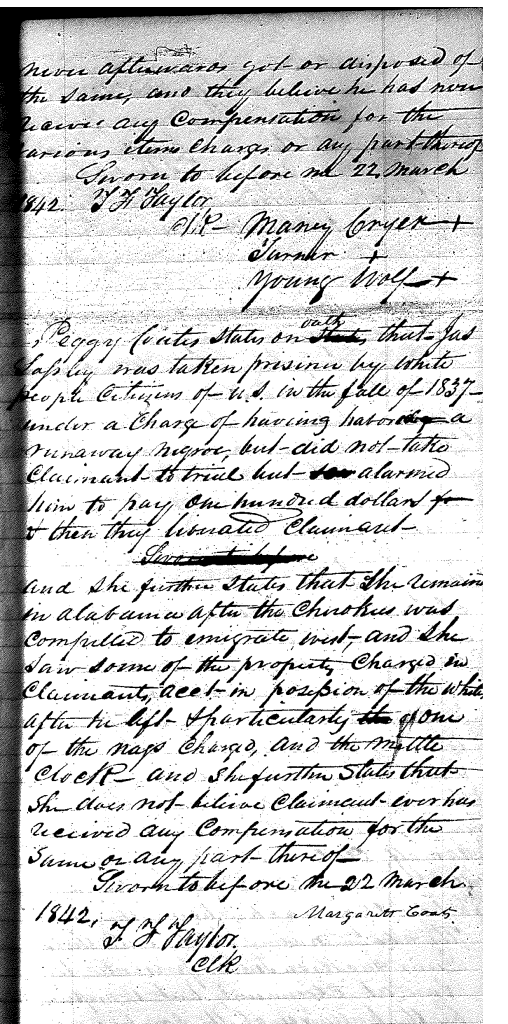 never afterwards got or disposed of
the same, and they believe he has now
receive any Compensation for the
various items Charges or any part thereof
Sworn to before me 22 March
1842. T F Taylor
Maney Cryer +
Turner +
Young Wolf +
Peggy Coates states on oath that Jas
was taken prisoner by White
people Citizens of U.S. in the fall of 1837
under a Charge of having a
runaway negroe, but did not take
Claimant to trial but alarmed
him to pay one hundred dollars
& then they liberated Claimant
Sworn to before
and she further states that She remained
in Alabama after the Cherokees was
Compelled to emigrate west, and She
Saw some of the property Charged in
Claimants acct in possession of the whites
after he left & particularly of one
of the nags Charged, and the mettle
Clock and She further States that
She does not believe Claimant ever has
received any Compensation for the
Same or any part thereof
Sworn to before me 22 March
1842, Margarett Coats
T F Taylor
Clk